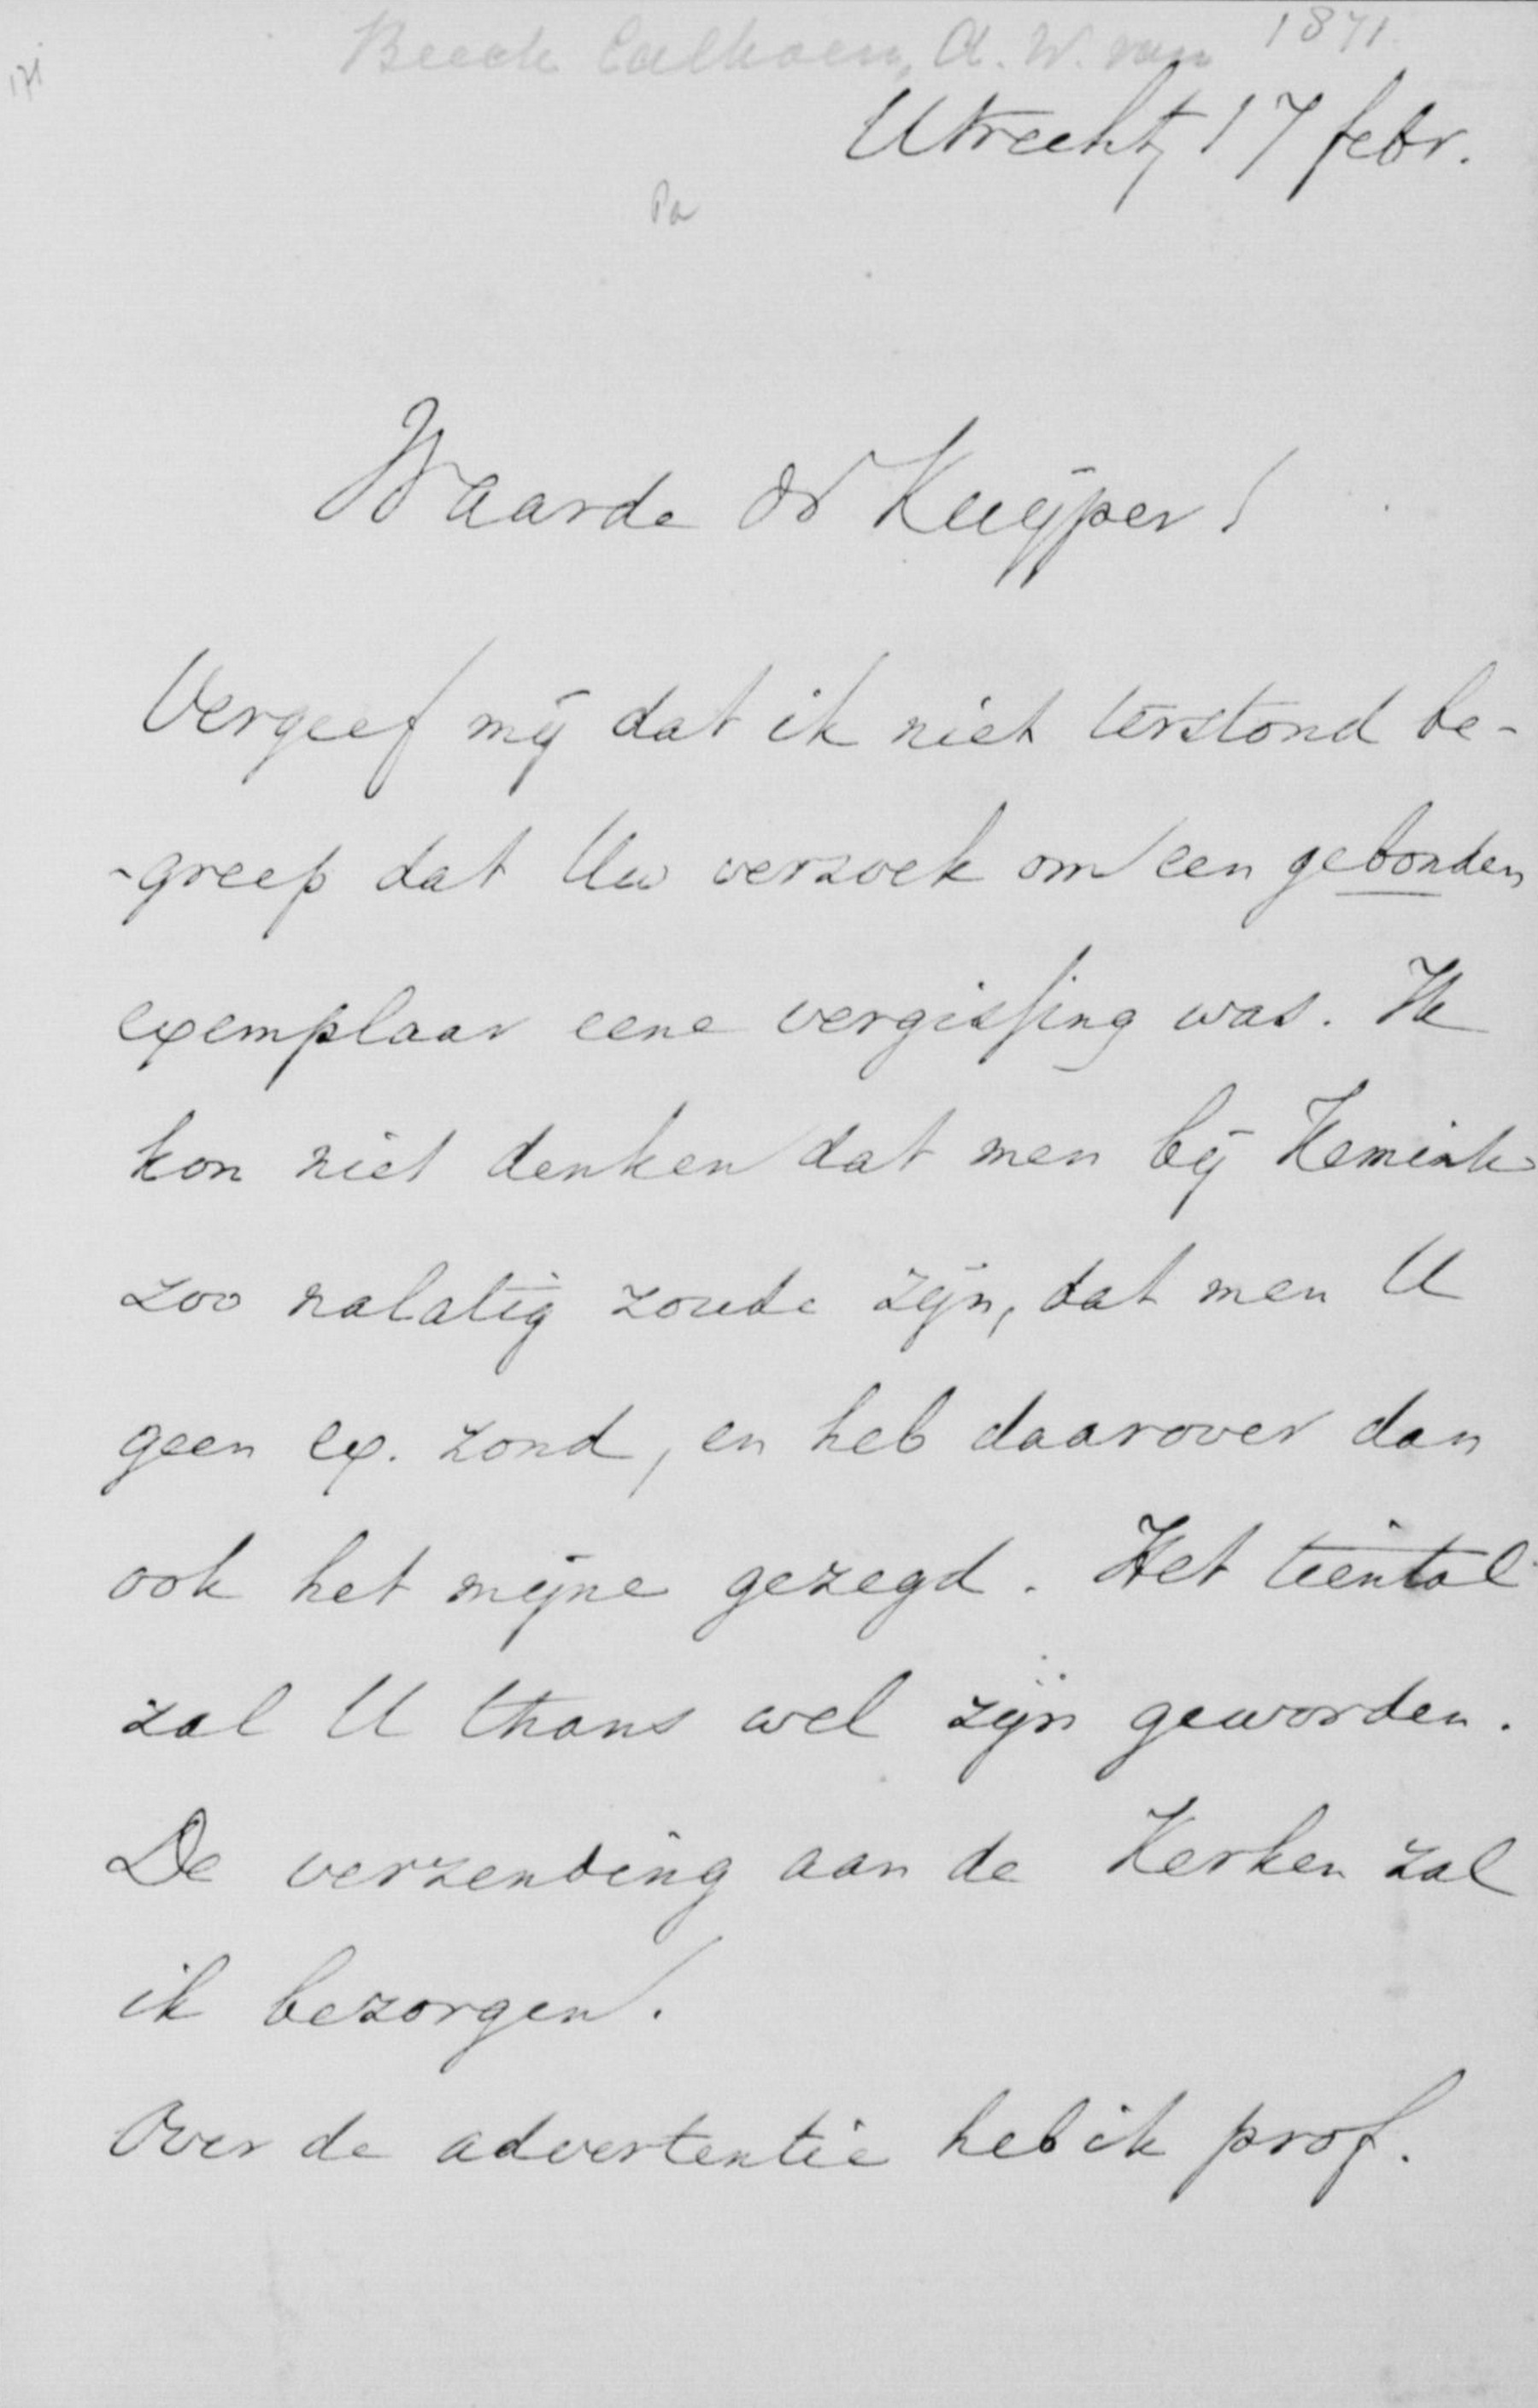 Beeck Calkoen, A. W. van 1871
171
Utrecht, 17 febr.
Pa
Waarde Dr Kuijper!
Vergeef mij dat ik niet terstond be-
-greep dat Uw verzoek om een gebonden
exemplaar eene vergissing was. Ik
kon niet denken dat men bij Kemink
zoo nalatig zoude zijn, dat men U
geen ex. zond, en heb daarover dan
ook het mijne gezegd. Het tiental
zal U thans wel zijn geworden.
De verzending aan de Kerken zal
ik bezorgen.
Over de advertentie heb ik prof.